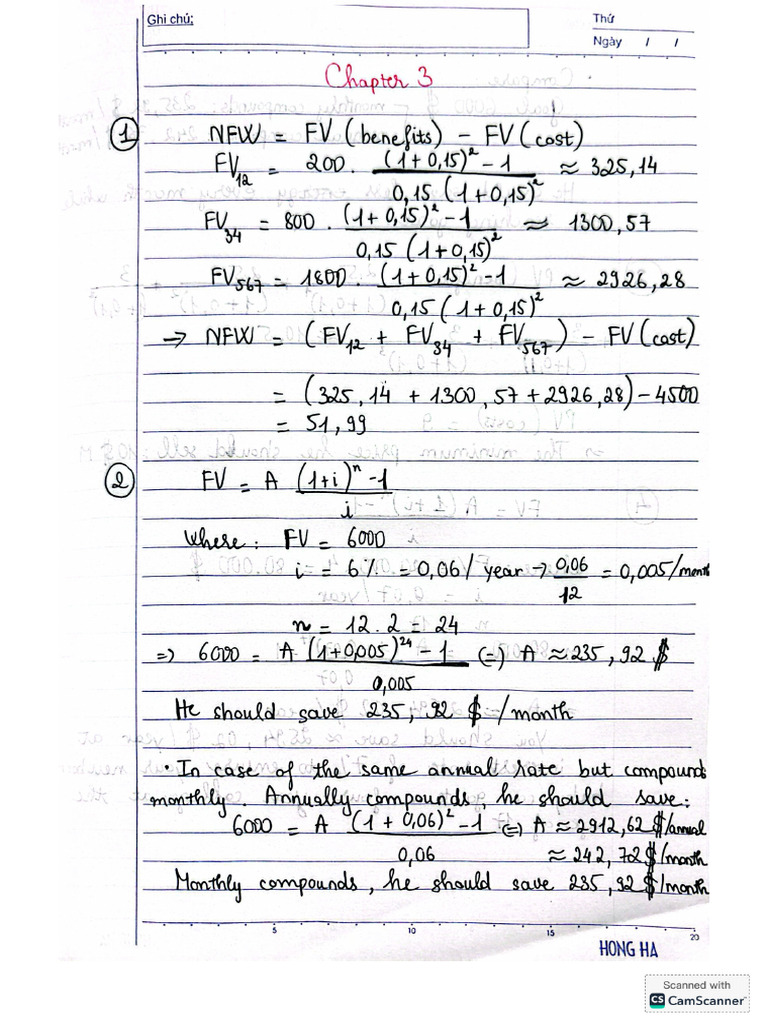 Ghi chú:
Thứ
Ngày / /
Chapter 3
① NFW = FV (benefits) - FV (cost)
FV₁₂ = 200 . (1+0,15)² - 1 / 0,15 (1+0,15)² ≈ 325,14
FV₃₄ = 800 . (1+0,15)² - 1 / 0,15 (1+0,15)² ≈ 1300,57
FV₅₆₇ = 1800 . (1+0,15)² - 1 / 0,15 (1+0,15)² ≈ 2926,28
→ NFW = (FV₁₂ + FV₃₄ + FV₅₆₇) - FV (cost)
= (325,14 + 1300,57 + 2926,28) - 4500
= 51,99
② FV = A (1+i)ⁿ - 1 / i
Where: FV = 6000
i = 6% = 0,06 / year → 0,06 / 12 = 0,005 / month
n = 12 . 2 = 24
=> 6000 = A (1+0,005)²⁴ - 1 / 0,005 (=) A ≈ 235,92 $
He should save 235,92 $ / month
• In case of the same annual rate but compounds
monthly. Annually compounds, he should save:
6000 = A (1 + 0,06)² - 1 / 0,06 (=) A ≈ 2912,62 $/annual
≈ 242,72 $/month
Monthly compounds, he should save 235,92 $/month
5 10 15 20
HONG HA
Scanned with
CS CamScanner